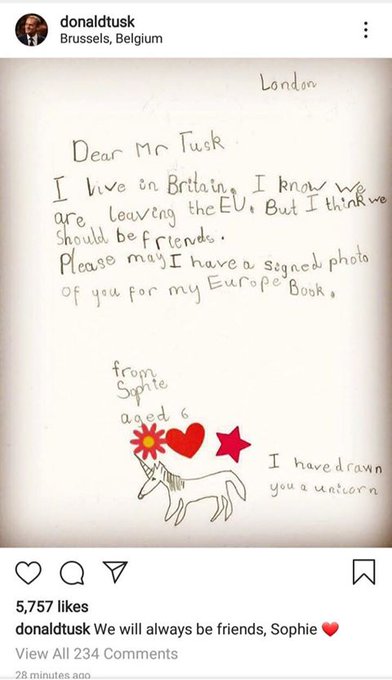 donaldtusk
Brussels, Belgium
London
Dear Mr Tusk
I live in Britain. I know we
are leaving the EU. But I think we
should be friends.
Please may I have a signed photo
of you for my Europe Book.
from
Sophie
aged 6
I have drawn
you a unicorn
5,757 likes
donaldtusk We will always be friends, Sophie ❤️
View All 234 Comments
28 minutes ago